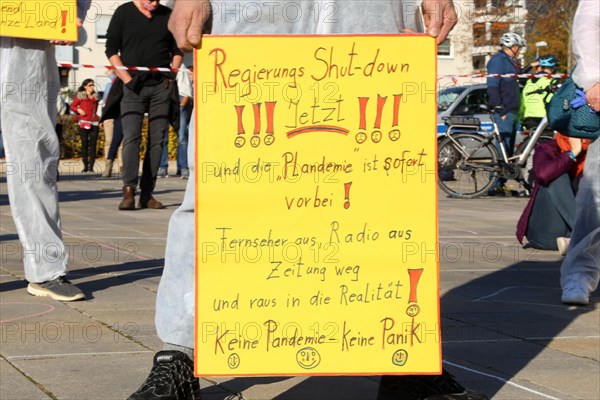 end für
anze Land!
Regierungs Shut-down
!!! Jetzt !!!
und die „Plandemie" ist sofort
vorbei !
Fernseher aus, Radio aus
Zeitung weg
und raus in die Realität !
Keine Pandemie - Keine Panik